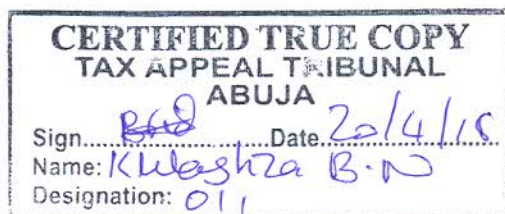 CERTIFIED TRUE COPY
TAX APPEAL TRIBUNAL
ABUJA
Sign.................Date 20/4/18
Name: B.N
Designation: 011